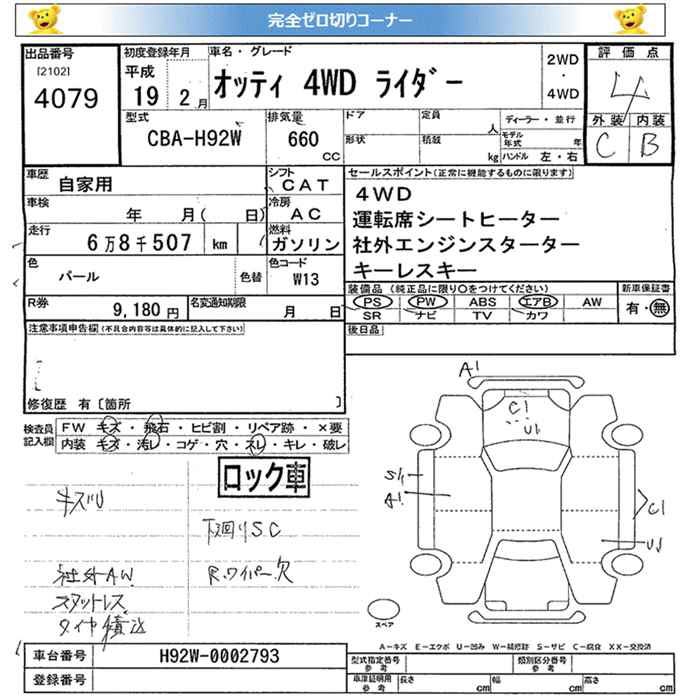 完全ゼロ切りコーナー
出品番号
[2102]
4079
初度登録年月
平成
19 2月
車名・グレード
オッティ 4WD ライダー
2WD
・
4WD
評価点
4
外装 内装
C B
型式
CBA-H92W
排気量
660
CC
ドア
定員
人
形状
積載
kg
ディーラー・並行
モデル年式
年
ハンドル 左・右
車歴
自家用
シフト
CAT
車検
年 月( 日)
冷房
AC
走行
6万8千507 km
燃料
ガソリン
色
パール
色替
色コード
W13
R券
9,180円
名変通知期限
月 日
セールスポイント(正常に機能するものに限ります)
4WD
運転席シートヒーター
社外エンジンスターター
キーレスキー
装備品 (純正品に限り○をつけてください)
PS PW ABS エアB AW
SR ナビ TV カワ
新車保証書
有・無
後日品
注意事項申告欄(不具合内容等は具体的に記入して下さい)
修復歴 有〔箇所 〕
検査員記入欄
FW キズ・飛石・ヒビ割・リペア跡・×要
内装 キズ・汚レ・コゲ・穴・スレ・キレ・破レ
ロック車
キズU
下廻りS.C
社外AW
R.ワイパー欠
スタットレス
タイヤ積込
A1
C1
U1
S1
A1
C1
U1
スペア
A-キズ E-エクボ U-凹み W-補修跡 S-サビ C-腐食 XX-交換済
車台番号
H92W-0002793
登録番号
型式指定番号
参考
類別区分番号
参考
車庫証明用
参考
長さ cm
幅 cm
高さ cm